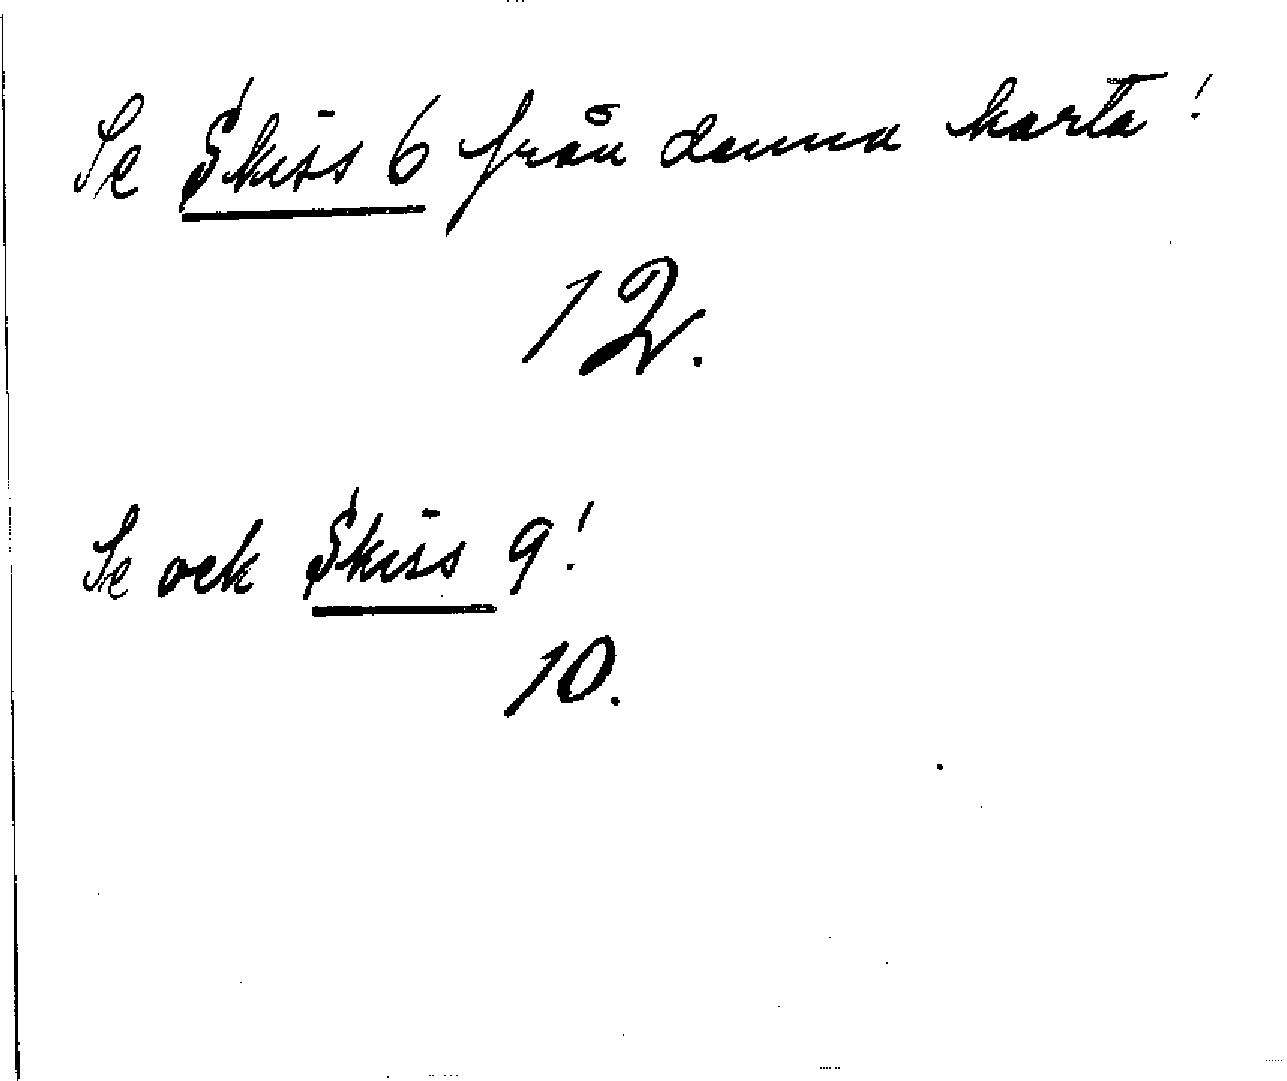 Se Skiss 6 från denna karta!
12.
Se ock Skiss 9!
10.